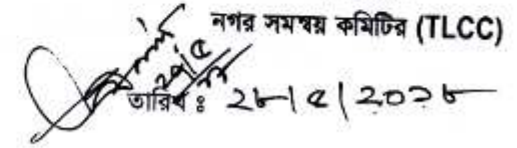 নগর সমন্বয় কমিটির (TLCC)
তারিখ : ২৮/৫/২০১৮